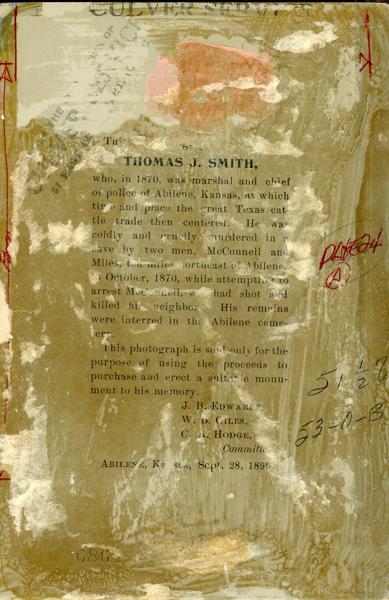 CULVER SERVICE
THOMAS J. SMITH,
who, in 1870, was marshal and chief
of police of Abilene, Kansas, at which
time and place the great Texas cat
tle trade then centered. He was
coldly and cruelly murdered in a
cave by two men, McConnell and
Miles, ten miles northeast of Abilene,
in October, 1870, while attempting to
arrest McConnell, who had shot and
killed his neighbor. His remains
were interred in the Abilene ceme-
tery.
This photograph is sold only for the
purpose of using the proceeds to
purchase and erect a suitable monu-
ment to his memory.
J. B. EDWARDS,
W. B. GILES,
C. A. HODGE,
Committee
ABILENE, Kansas, Sept. 28, 189
A
51
53-0-B